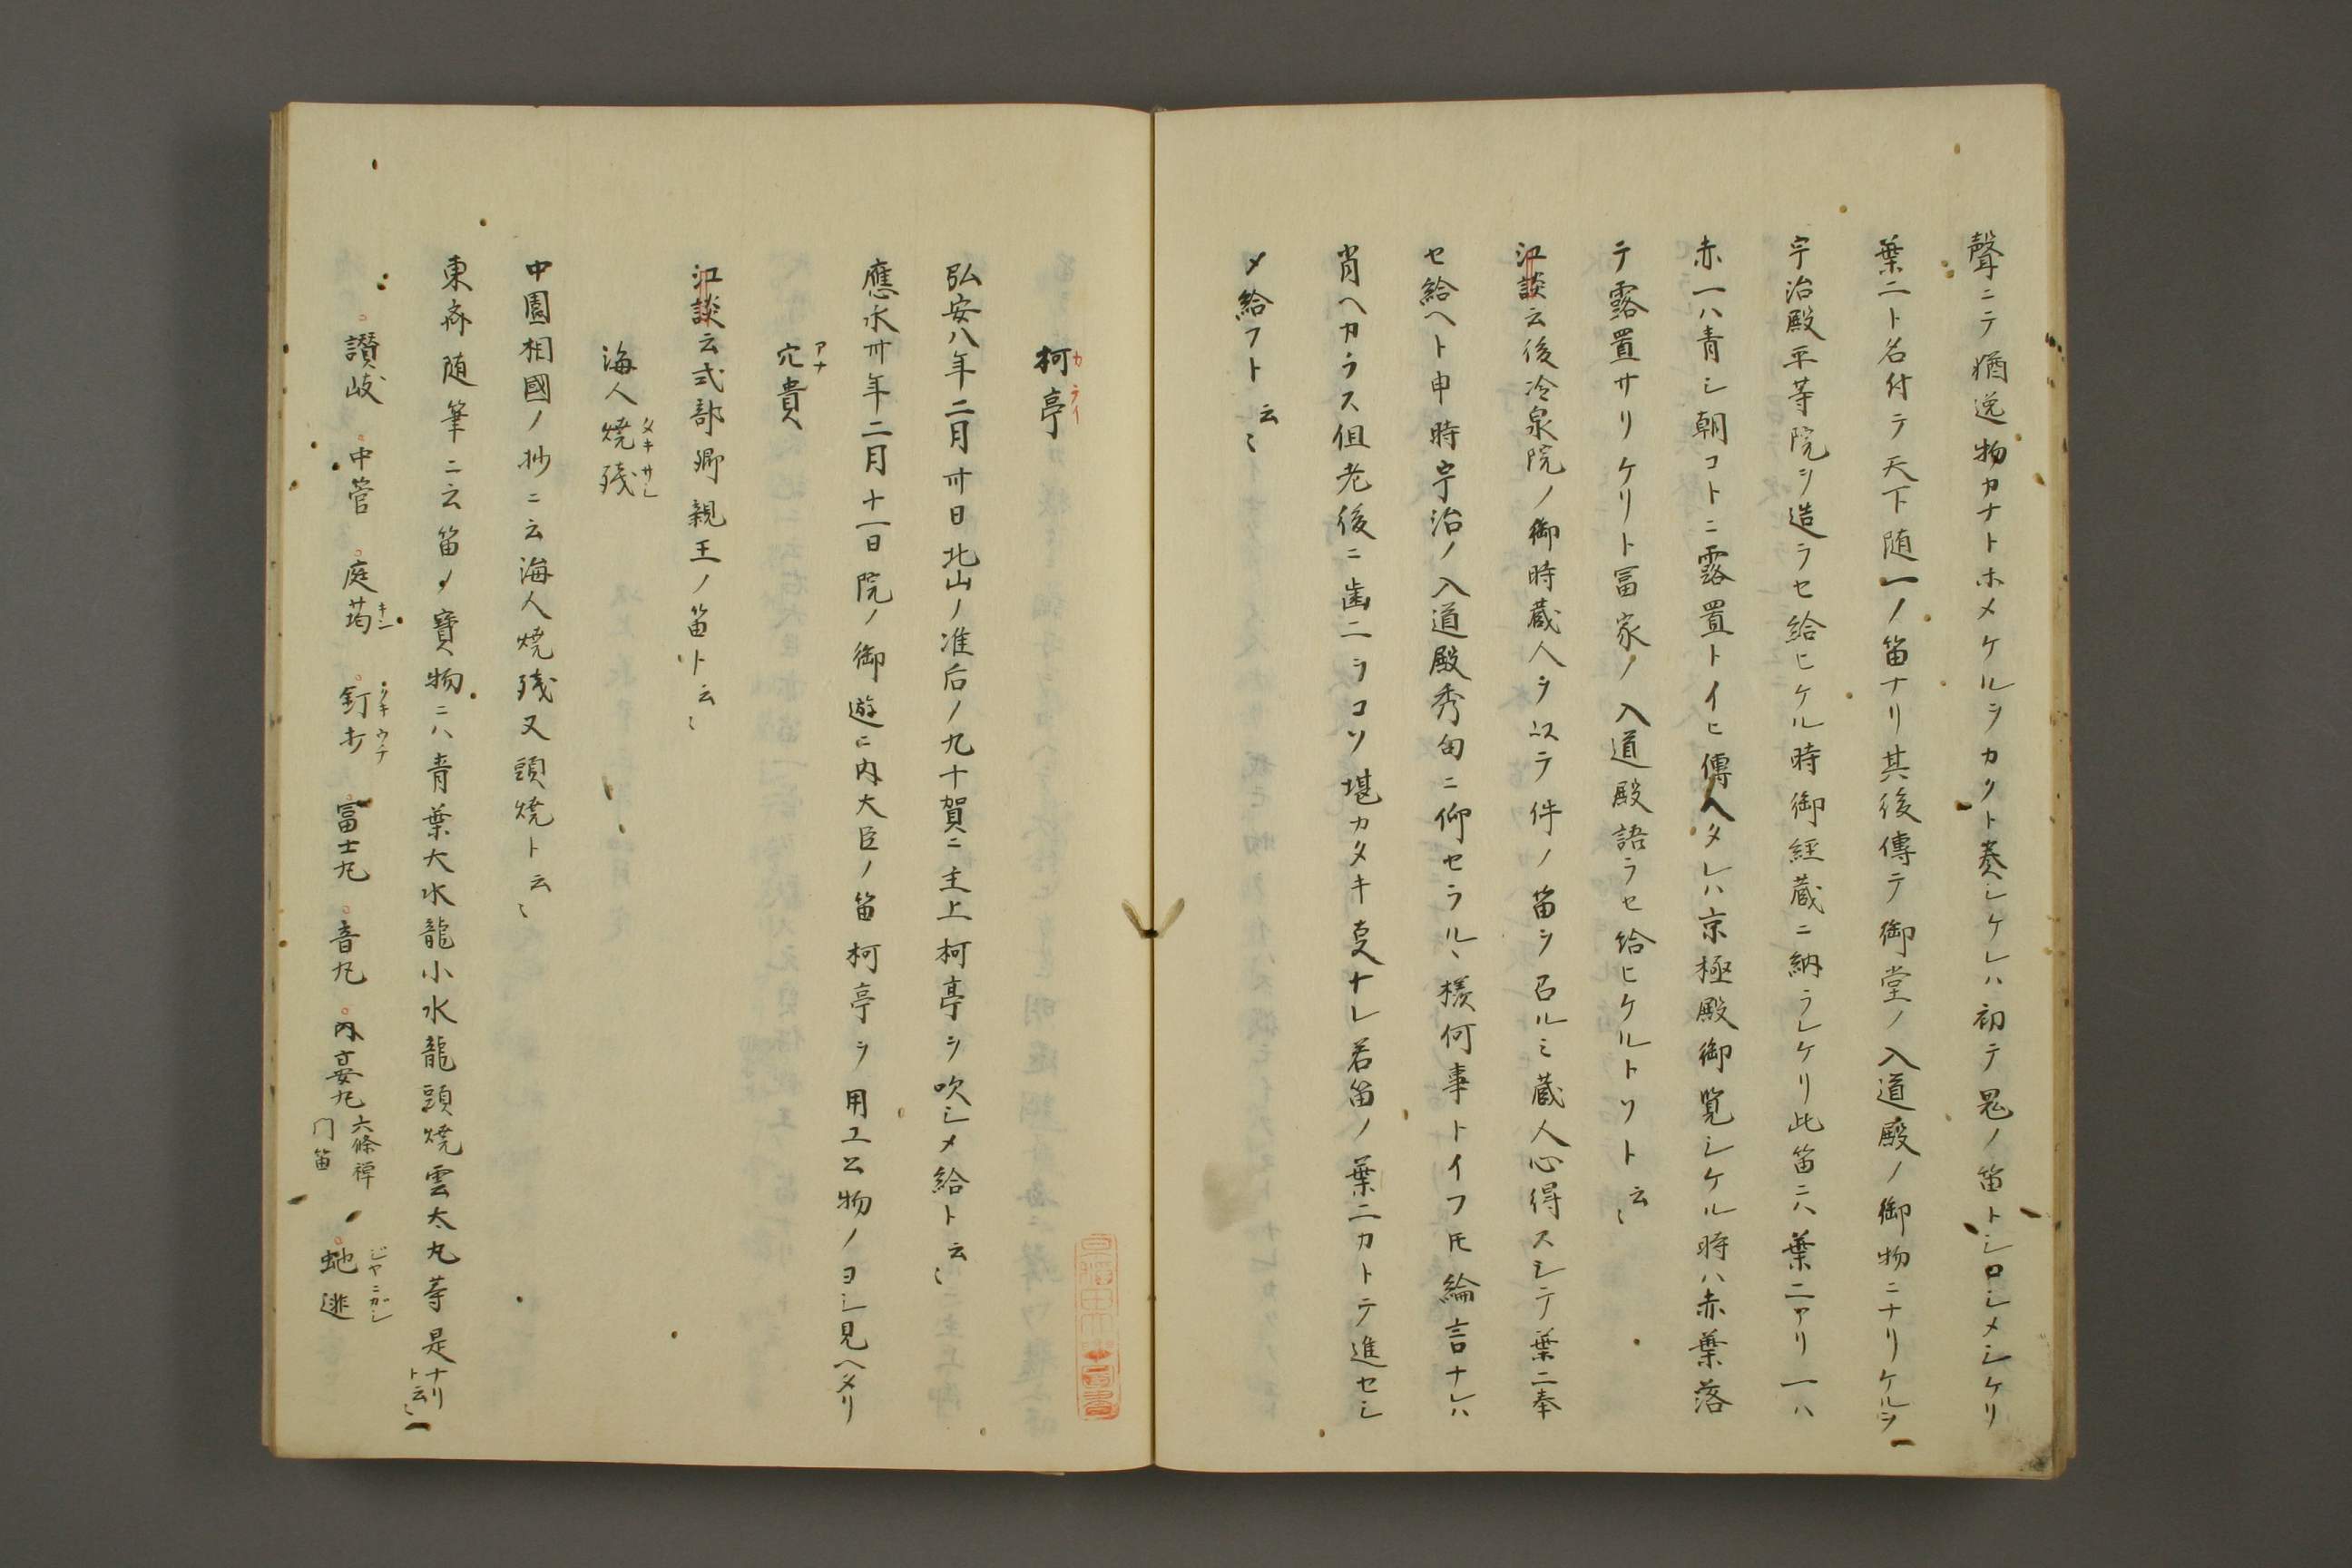 聲ニテ猶逸物カナトホメケルヲカクト奏シケレハ初テ鬼ノ笛トシロシメシケリ
葉二ト名付テ天下随一ノ笛ナリ其後傳テ御堂ノ入道殿ノ御物ニナリケルヲ
宇治殿平等院ヲ造ラセ給ヒケル時御経蔵ニ納ラレケリ此笛ニハ葉二アリ一ハ
赤一ハ青シ朝コトニ露置トイヒ傳ヘタレハ京極殿御覧シケル時ハ赤葉落
テ露置サリケリト冨家ノ入道殿語ラセ給ヒケルトソト云〻
江談云後冷泉院ノ御時蔵人ヲ以テ件ノ笛ヲ召ルミ蔵人心得スシテ葉二奉
セ給ヘト申時宇治ノ入道殿秀句ニ仰セラルヽ様何事トイフ𪜈綸言ナレハ
背ヘカラス但老後ニ歯二ヲコソ堪カタキ叓ナレ若笛ノ葉二カトテ進セシ
メ給フト云〻
柯亭 カテイ
弘安八年二月卅日北山ノ准后ノ九十賀ニ主上柯亭ヲ吹シメ給ト云〻
應永卅年二月十一日院ノ御遊ニ内大臣ノ笛柯亭ヲ用ユ公物ノヨシ見ヘタリ
穴貴 アナ
江談云式部卿親王ノ笛ト云〻
海人焼残 タキサシ
中園相國ノ抄ニ云海人焼残又頭焼ト云〻
東齋随筆ニ云笛ノ寶物ニハ青葉大水龍小水龍頭焼雲太丸等是ナリト云〻
讃岐 中管 庭筠 キン 釘打 クキウチ 冨士丸 音丸 内宴丸 六條禅門笛 虵逃 ジヤニガシ